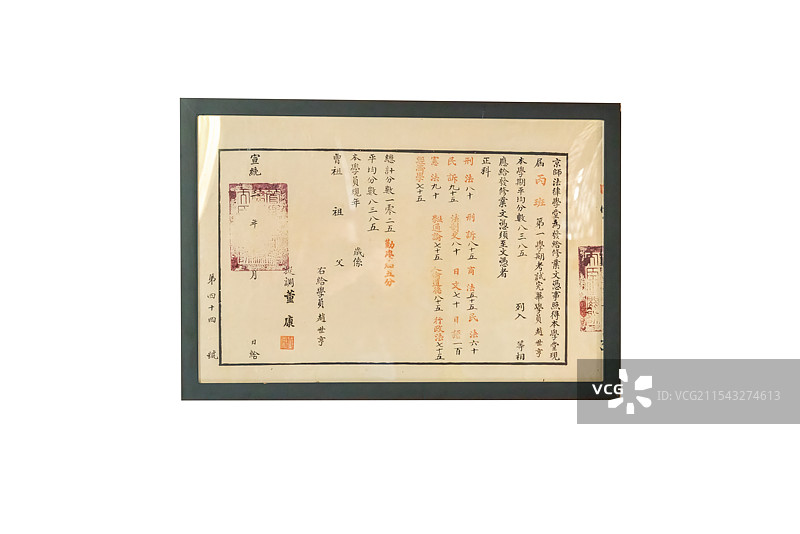 京師法律學堂為發給修業文憑事照得本學堂現
屆丙班第一學期考試完畢學員趙世亨
本學期平均分數八三八五 列入 等相
應給發修業文憑須至文憑者
正科
刑法八十 刑訴八十五 商法五十五 民法六十
民訴九十五 法制史八十 日文七十 日語一百
憲法九十 七十五 八十五 行政法七十五
七十五
總計分數一零二五 五分
平均分數八三八五
本學員現年 歲係
曹祖 祖 父
右給學員趙世亨
調董康
宣統 年 月 日給
第四十四號
VCG
VCG
ID:VCG211543274613